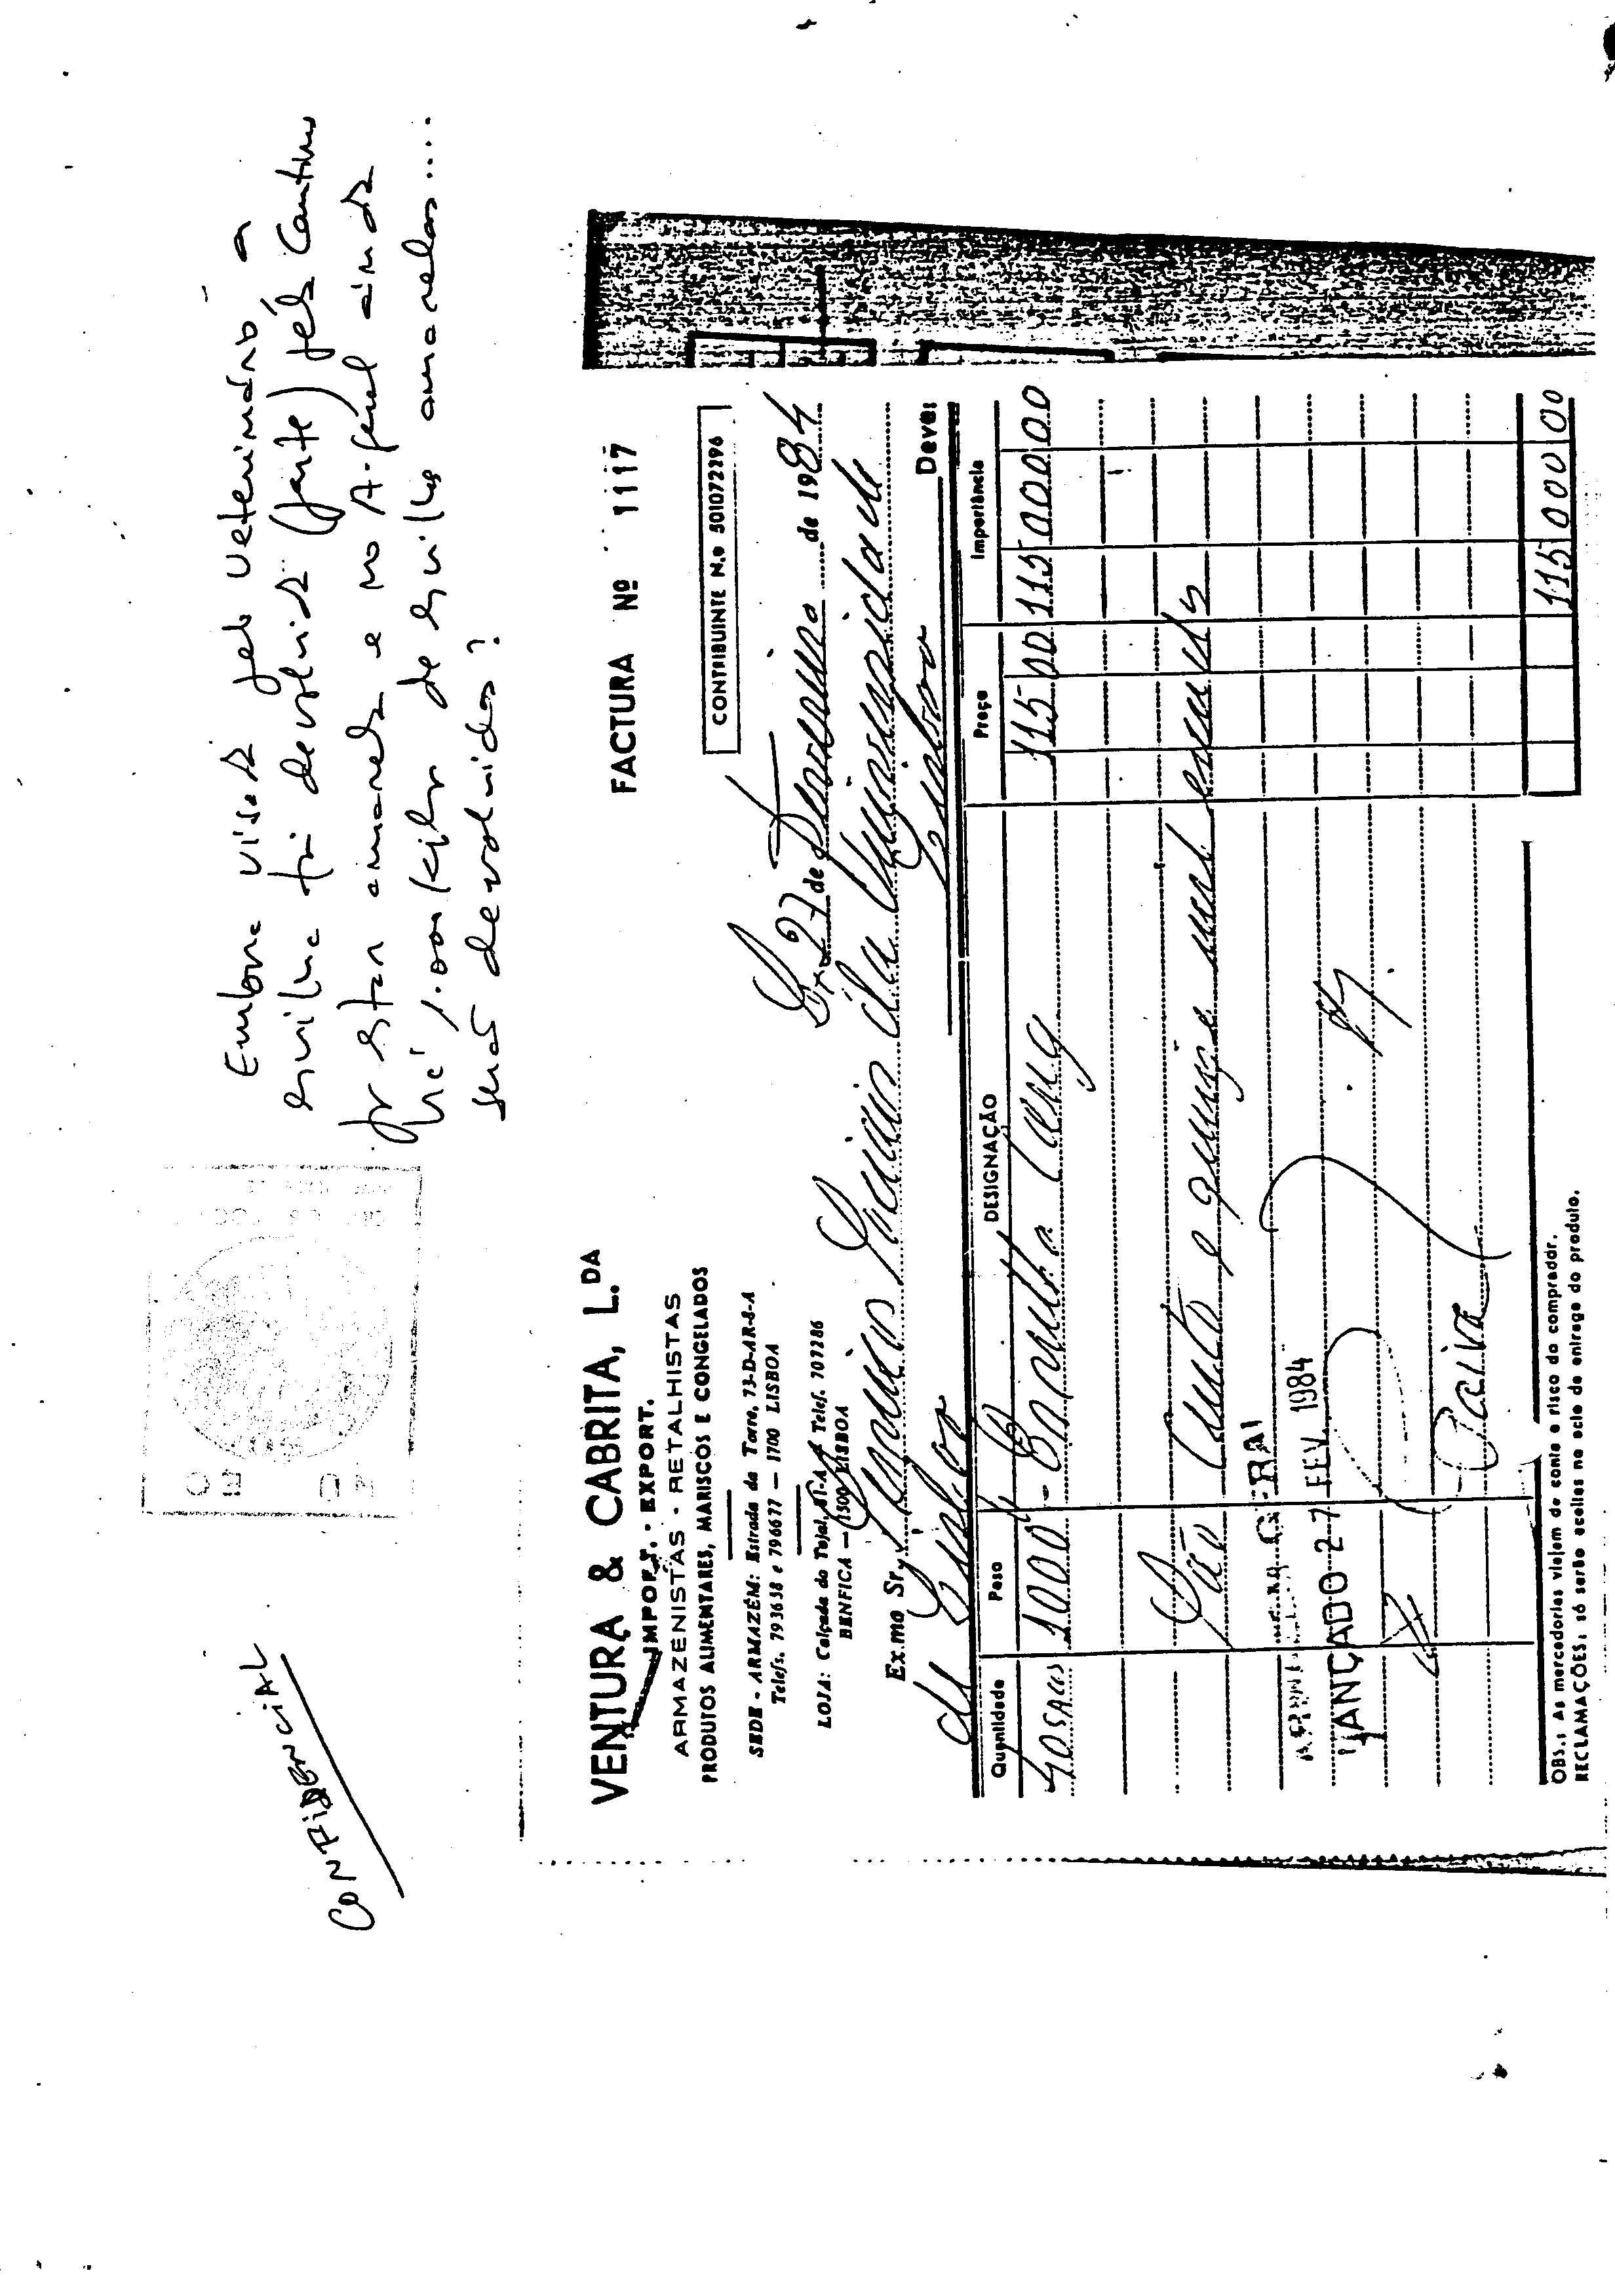 CONFIDENCIAL
Embora visada pelo veterinário a
ervilha foi devolvida (parte) pela Cantina
por estar amarela e no A. geral ainda
há 1.000 kilos de ervilhas amarelas....
serão devolvidas?
VENTURA & CABRITA, L.DA
IMPORT. - EXPORT.
ARMAZENISTAS - RETALHISTAS
PRODUTOS ALIMENTARES, MARISCOS E CONGELADOS
SEDE - ARMAZÉM: Estrada da Torre, 73-D-AR-8-A
Telefs. 793658 e 796677 — 1700 LISBOA
LOJA: Calçada do Tojal, Telef. 707286
BENFICA — 1500 LISBOA
FACTURA Nº 1117
CONTRIBUINTE N.º 501072396
27 de Fevereiro de 1984
Ex.mo Sr. Serviços Sociais da Universidade
de Lisboa Lisboa Deve:
Quantidade Peso DESIGNAÇÃO Preço Importância
40 SACOS 1000 115 00 115 000 00
São Cento e quinze mil escudos
GERAL
LANÇADO 27 FEV. 1984
Paiva
115 000 00
OBS.: As mercadorias viajam de conta e risco do comprador.
RECLAMAÇÕES: só serão aceites no acto de entrega do produto.